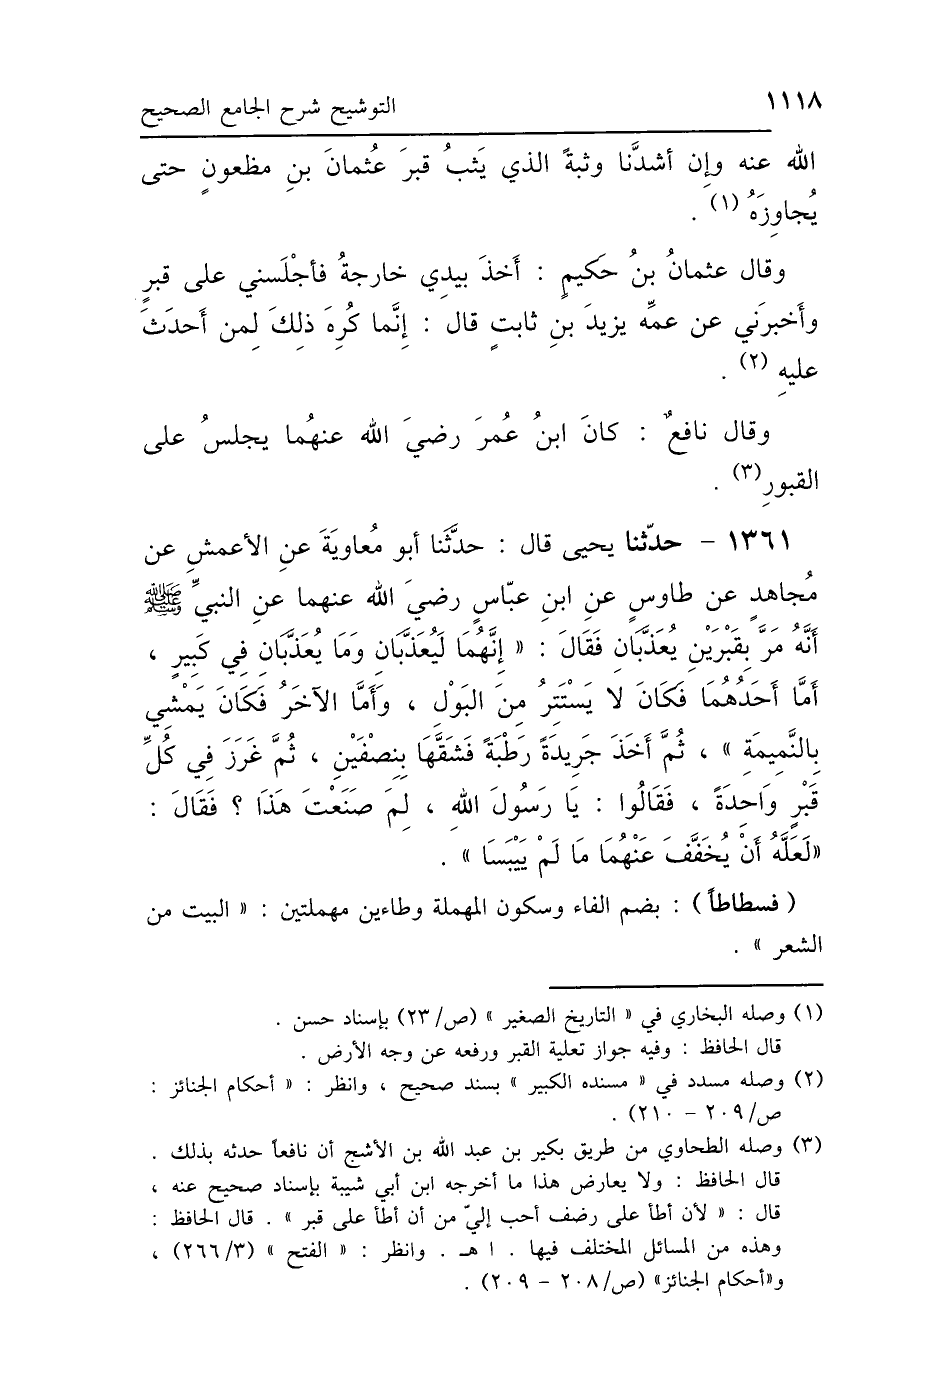 ١١١٨
التوشيح شرح الجامع الصحيح
الله عنه وإِن أشدَّنا وثبةً الذي يَثبُ قبرَ عُثمانَ بنِ مظعونٍ حتى
يُجاوِزَهُ (١) .
وقال عثمانُ بنُ حَكيمٍ : أَخذَ بيدِي خارجةُ فأجْلَسني على قبرٍ
وأَخبرَني عن عمِّه يزيدَ بنِ ثابتٍ قال : إِنَّما كُرِهَ ذلِكَ لِمن أَحدَثَ
عليهِ (٢) .
وقال نافعٌ : كانَ ابنُ عُمرَ رضيَ الله عنهُما يجلسُ على
القبورِ(٣) .
١٣٦١ - حدّثنا يحيى قال : حدَّثَنا أبو مُعاويَةَ عنِ الأعمشِ عن
مُجاهدٍ عن طاوسٍ عنِ ابنِ عبّاسٍ رضيَ الله عنهما عنِ النبيِّ ﷺ
أَنَّهُ مَرَّ بِقَبْرَيْنِ يُعَذَّبَان فَقَالَ : « إِنَّهُمَا لَيُعَذَّبَانِ وَمَا يُعَذَّبَانِ فِي كَبِيرٍ ،
أَمَّا أَحَدُهُمَا فَكَانَ لا يَسْتَتِرُ مِنَ البَوْلِ ، وَأَمَّا الآخَرُ فَكَانَ يَمْشِي
بِالنَّمِيمَةِ » ، ثُمَّ أَخَذَ جَرِيدَةً رَطْبَةً فَشَقَّهَا بِنِصْفَيْنِ ، ثُمَّ غَرَزَ فِي كُلِّ
قَبْرٍ وَاحِدَةً ، فَقَالُوا : يَا رَسُولَ اللهِ ، لِمَ صَنَعْتَ هَذَا ؟ فَقَالَ :
«لَعَلَّهُ أَنْ يُخَفَّفَ عَنْهُمَا مَا لَمْ يَيْبَسَا » .
( فسطاطاً ) : بضم الفاء وسكون المهملة وطاءين مهملتين : « البيت من
الشعر » .
(١) وصله البخاري في « التاريخ الصغير » (ص/٢٣) بإسناد حسن .
قال الحافظ : وفيه جواز تعلية القبر ورفعه عن وجه الأرض .
(٢) وصله مسدد في « مسنده الكبير » بسند صحيح ، وانظر : « أحكام الجنائز :
ص/٢٠٩ - ٢١٠) .
(٣) وصله الطحاوي من طريق بكير بن عبد الله بن الأشج أن نافعاً حدثه بذلك .
قال الحافظ : ولا يعارض هذا ما أخرجه ابن أبي شيبة بإسناد صحيح عنه ،
قال : « لأن أطأ على رضف أحب إليّ من أن أطأ على قبر » . قال الحافظ :
وهذه من المسائل المختلف فيها . ا هـ . وانظر : « الفتح » (٢٦٦/٣) ،
و«أحكام الجنائز» (ص/٢٠٨ - ٢٠٩) .